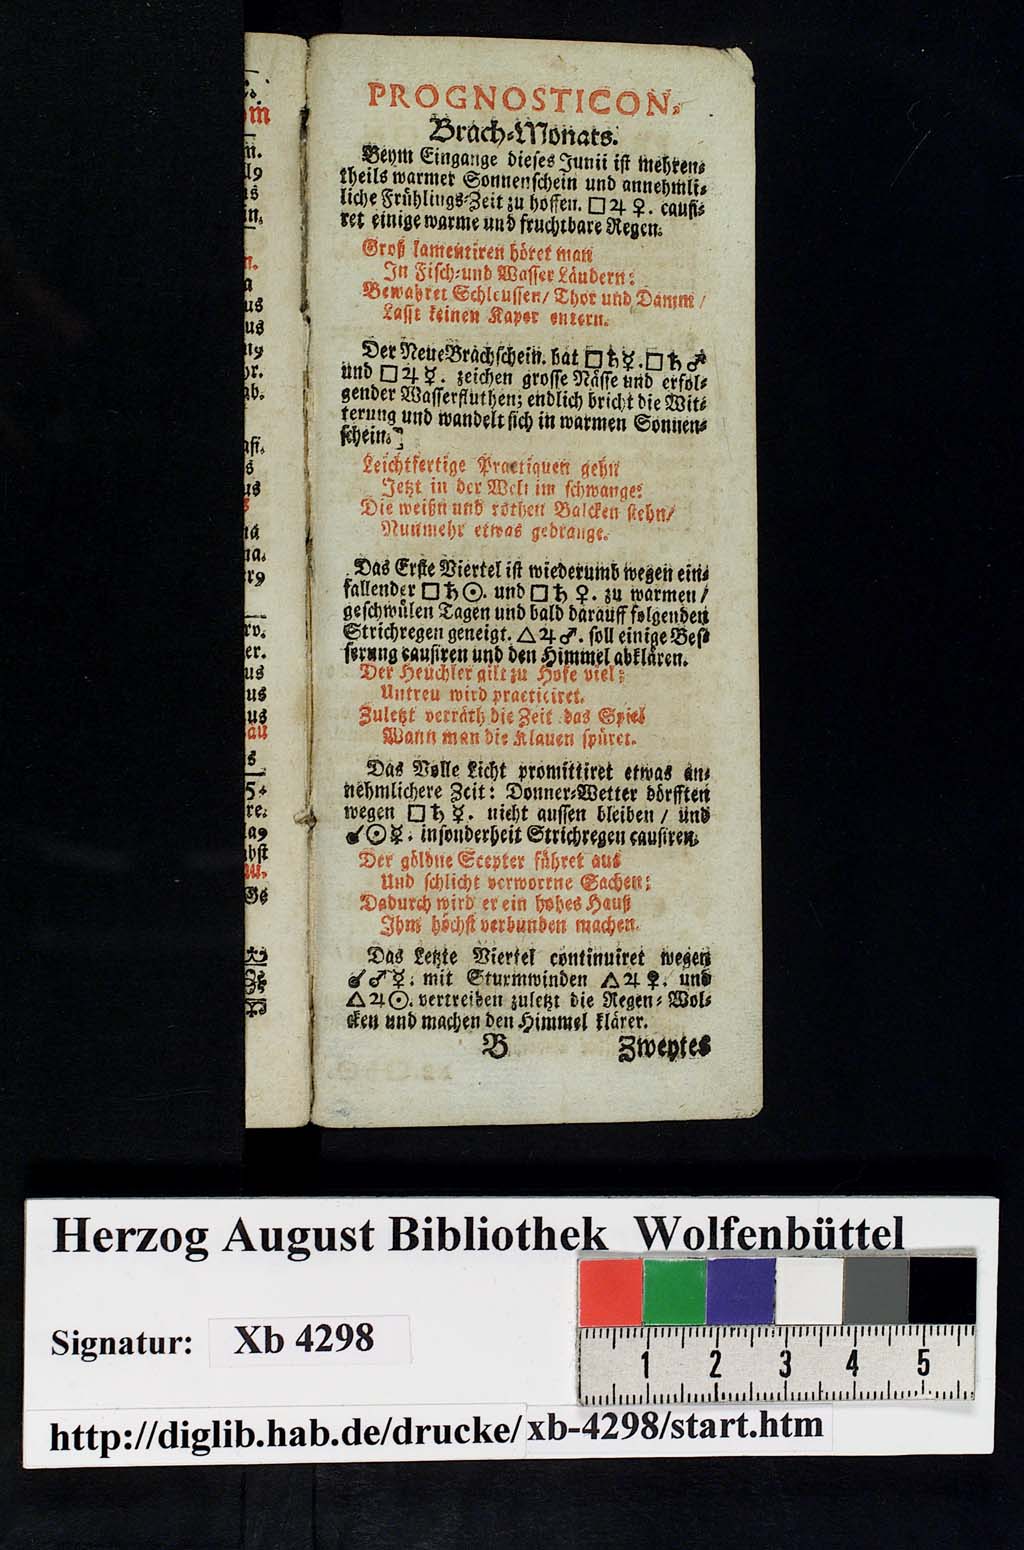 PROGNOSTICON.
Brach-Monats.
Beym Eingange dieses Junii ist mehren-
theils warmer Sonnenschein und annehmli-
liche Frühlings-Zeit zu hoffen. □ ♃ ♀. causi-
ret einige warme und fruchtbare Regen.
Groß lamentiren höret man
In Fisch- und Wasser Ländern:
Bewahret Schleussen/ Thor und Damm/
Lasst keinen Kaper entern.
Der Neue Brachschein. hat □ ♄ ☿. □ ♄ ♂
und □ ♃ ☿. zeichen grosse Nässe und erfol-
gender Wasserfluthen; endlich bricht die Wit-
terung und wandelt sich in warmen Sonnen-
schein.
Leichtfertige Practiquen gehn
Jetzt in der Welt im schwange:
Die weißn und rothen Balcken stehn/
Nunmehr etwas gedrange.
Das Erste Viertel ist wiederumb wegen ein-
fallender □ ♄ ☉. und □ ♄ ♀. zu warmen/
geschwülen Tagen und bald darauff folgenden
Strichregen geneigt. △ ♃ ♂. soll einige Bes-
serung causiren und den Himmel abklären.
Der Heuchler gilt zu Hofe viel;
Untreu wird practiciret.
Zuletzt verräth die Zeit das Spiel
Wann man die Klauen spüret.
Das Volle Licht promittiret etwas an-
nehmlichere Zeit: Donner-Wetter dörfften
wegen □ ♄ ☿. nicht aussen bleiben/ und
☌ ☉ ☿. insonderheit Strichregen causiren.
Der göldne Scepter führet aus
Und schlicht verworrne Sachen:
Dadurch wird er ein hohes Hauß
Ihm höchst verbunden machen.
Das Letzte Viertel continuiret wegen
☌ ♂ ☿. mit Sturmwinden △ ♃ ♀. und
△ ♃ ☉. vertreiben zuletzt die Regen-Wol-
cken und machen den Himmel klärer.
B Zweytes
Herzog August Bibliothek Wolfenbüttel
Signatur: Xb 4298
1 2 3 4 5
http://diglib.hab.de/drucke/xb-4298/start.htm